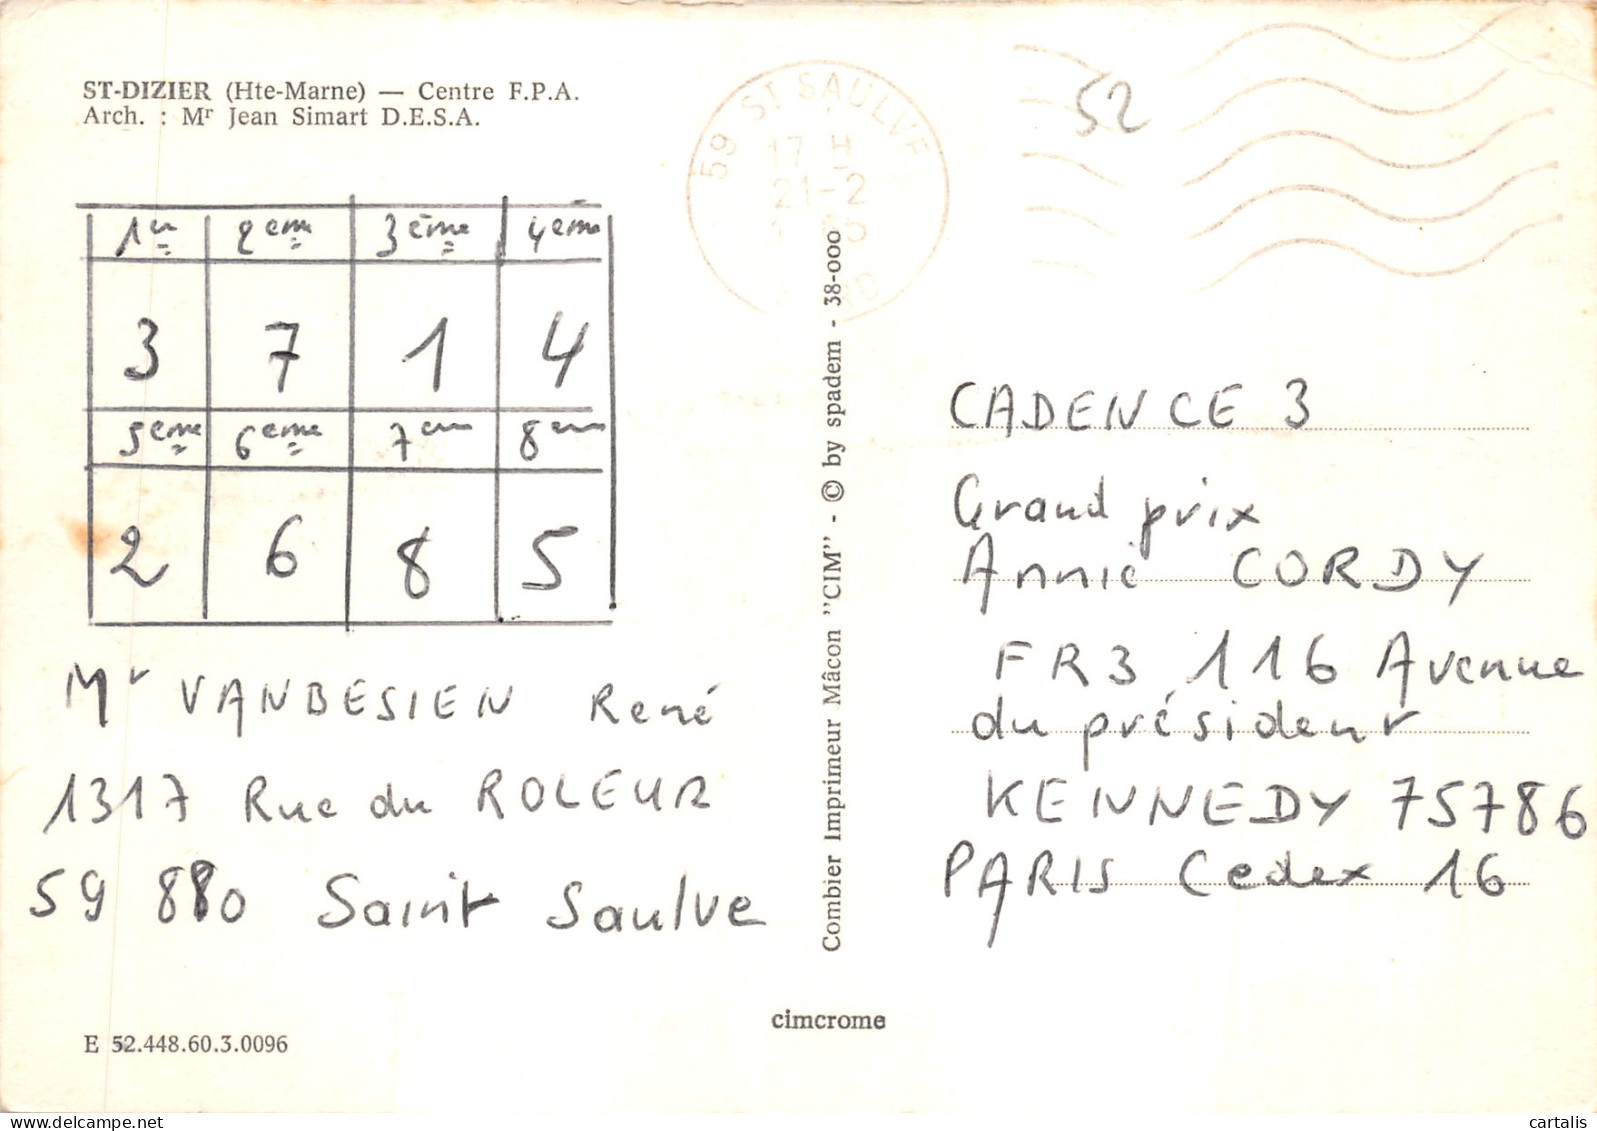 ST-DIZIER (Hte-Marne) — Centre F.P.A.
Arch. : Mr Jean Simart D.E.S.A.
59 ST SAULVE
17 H
21-2
52
1er 2eme 3ème 4ème
3 7 1 4
5eme 6eme 7em 8em
2 6 8 5
Mr VANBESIEN René
1317 Rue du ROLEUR
59 880 Saint Saulve
E 52.448.60.3.0096
Combier Imprimeur Mâcon "CIM" - © by spadem - 38-000
cimcrome
CADENCE 3
Grand prix
Annie CORDY
FR3 116 Avenue
du président
KENNEDY 75786
PARIS Cedex 16
cartalis